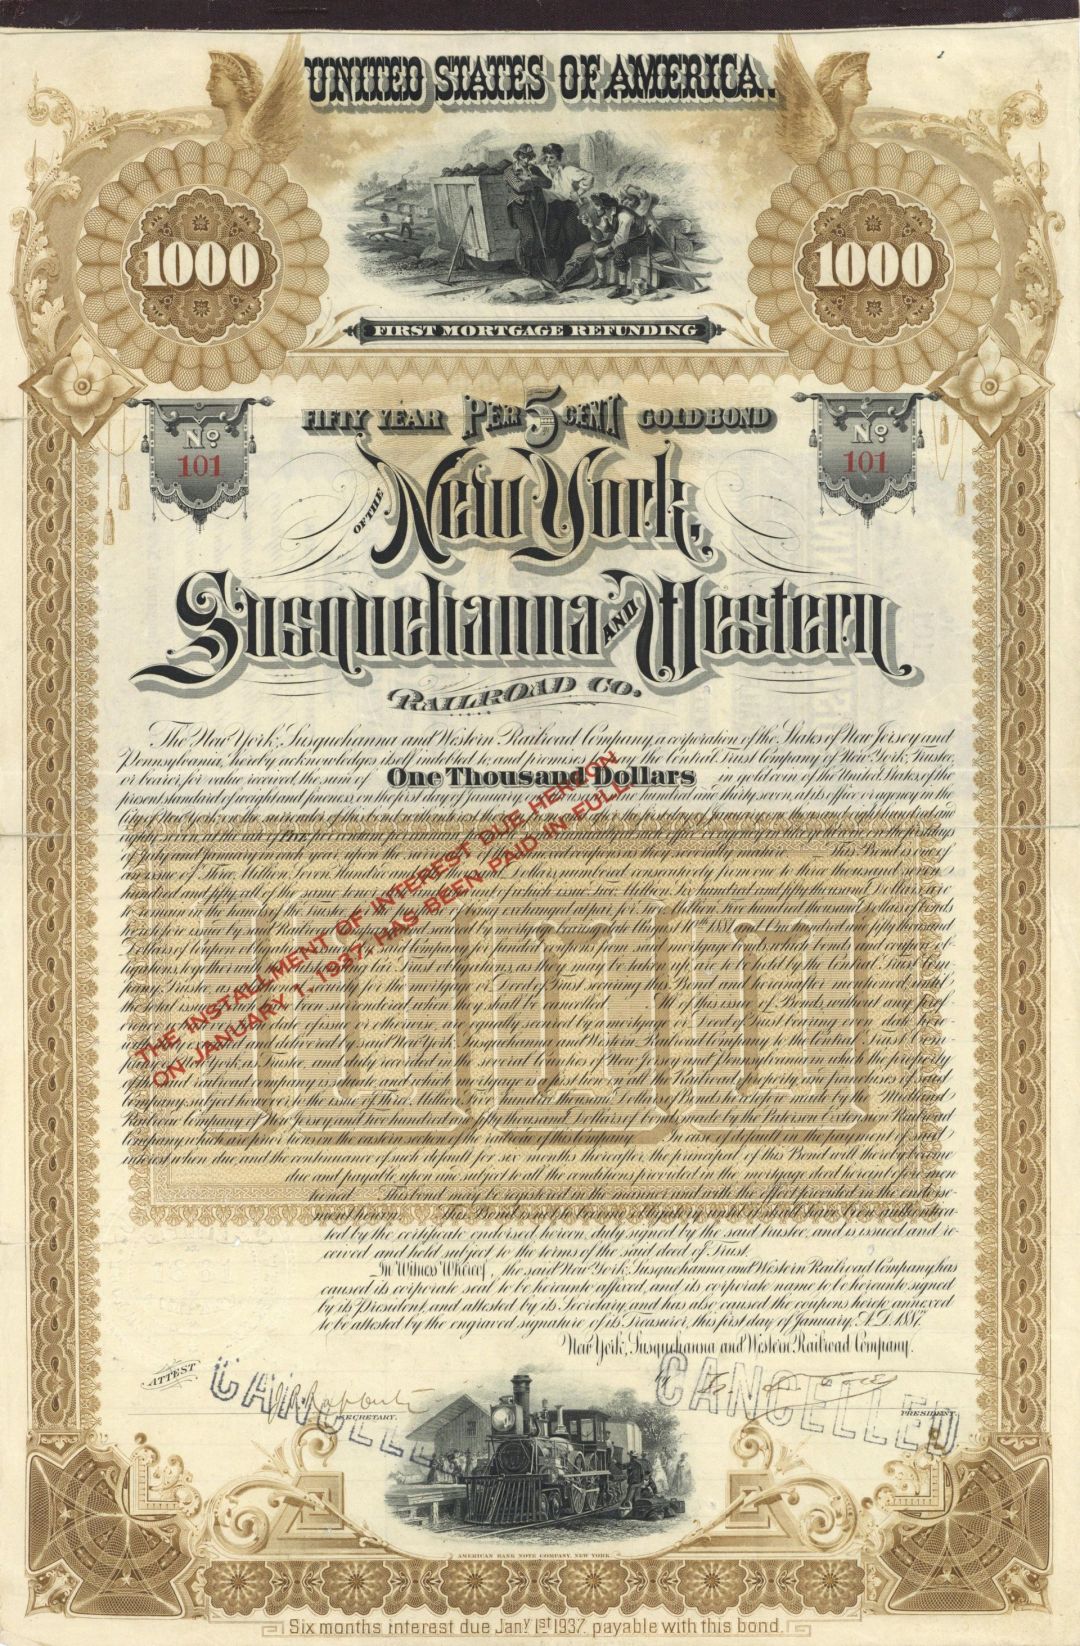 UNITED STATES OF AMERICA.
1000
1000
FIRST MORTGAGE REFUNDING
FIFTY YEAR PER 5 CENT GOLD BOND
No 101
No 101
OF THE New York,
Susquehanna AND Western
RAILROAD CO.
The New York, Susquehanna and Western Railroad Company, a corporation of the States of New Jersey and
Pennsylvania, hereby acknowledges itself indebted to, and promises to pay the Central Trust Company of New York, Trustee,
or bearer, for value received, the sum of One Thousand Dollars in gold coin of the United States, of the
present standard of weight and fineness, on the first day of January, one thousand nine hundred and thirty seven, at its office or agency in the
City of New York, on the surrender of this bond, with interest thereon from and after the first day of January, one thousand eight hundred and
eighty seven, at the rate of Five per centum per annum, payable semi-annually at such office or agency in like gold coin on the first days
of July and January in each year, upon the surrender of the annexed coupons as they severally mature. This Bond is one of
an issue of Three Million Seven Hundred and Fifty thousand Dollars, numbered consecutively from one to three thousand seven
hundred and fifty, all of the same tenor and amount, of which issue Two Million Six hundred and fifty thousand Dollars, are
to remain in the hands of the Trustee for the purpose of being exchanged at par, for Two Million Five hundred thousand Dollars of bonds
heretofore issued by said Railroad Company and secured by mortgage bearing date August 10th 1881, and One Hundred and fifty thousand
Dollars of coupon obligations issued by said Company for funded coupons from said mortgage bonds, which bonds and coupon ob-
ligations, together with outstanding Car Trust obligations, as they may be taken up, are to be held by the Central Trust Com-
pany, Trustee, as additional security for the mortgage or Deed of Trust securing this Bond and hereinafter mentioned, until
the total issue has been surrendered when they shall be cancelled. All of this issue of Bonds, without any pref-
erence as to the date of issue or otherwise, are equally secured by a mortgage or Deed of Trust bearing even date here-
with, executed and delivered by said New York, Susquehanna and Western Railroad Company to the Central Trust Com-
pany of New York, as Trustee, and duly recorded in the several Counties of New Jersey and Pennsylvania in which the property
of the said railroad company is situate, and which mortgage is a first lien on all the Railroad, property, and franchises of said
Company, subject however to the issue of Three Million Five hundred thousand Dollars of Bonds heretofore made by the Midland
Railroad Company of New Jersey, and two hundred and fifty thousand Dollars of bonds made by the Paterson Extension Railroad
Company which are prior liens on the eastern section of the railroad of this Company. In case of default in the payment of said
interest when due, and the continuance of such default for six months thereafter, the principal of this Bond will thereby become
due and payable, upon and subject to all the conditions provided in the mortgage deed hereinbefore men-
tioned. This bond may be registered in the manner and with the effect provided in the endorse-
ment hereon. This Bond is not to become obligatory until it shall have been authentica-
ted by the certificate endorsed hereon, duly signed by the said trustee, and is issued and re-
ceived and held subject to the terms of the said deed of Trust.
In Witness Whereof, the said New York, Susquehanna and Western Railroad Company has
caused its corporate seal to be hereunto affixed, and its corporate name to be hereunto signed
by its President, and attested by its Secretary, and has also caused the coupons hereto annexed
to be attested by the engraved signature of its Treasurer, this first day of January, A.D. 1887.
New York, Susquehanna and Western Railroad Company.
THE INSTALLMENT OF INTEREST DUE HEREON
ON JANUARY 1, 1937, HAS BEEN PAID IN FULL.
ATTEST
SECRETARY.
by
PRESIDENT.
CANCELLED
CANCELLED
AMERICAN BANK NOTE COMPANY, NEW YORK.
Six months interest due Jany. 1st 1937. payable with this bond.